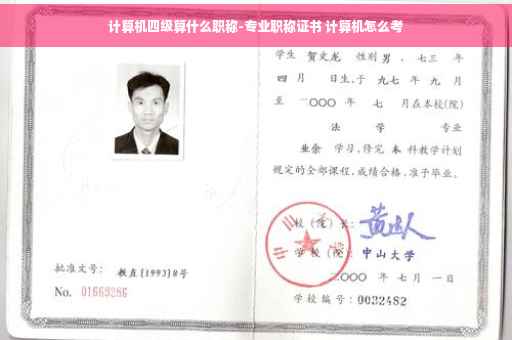 计算机四级算什么职称-专业职称证书 计算机怎么考
学生 贺文龙 性别 男 、七三 年
四 月 日生,于 九七 年 九 月
至 二〇〇〇 年 七 月在本校(院)
法 学 专业
业余 学习,修完 本 科教学计划
规定的全部课程,成绩合格,准予毕业。
校(院)长:
学校(院): 中山大学
二〇〇〇 年 七 月 一 日
学校编号:0032482
批准文号: 教直(1993)8号
No. 01669286